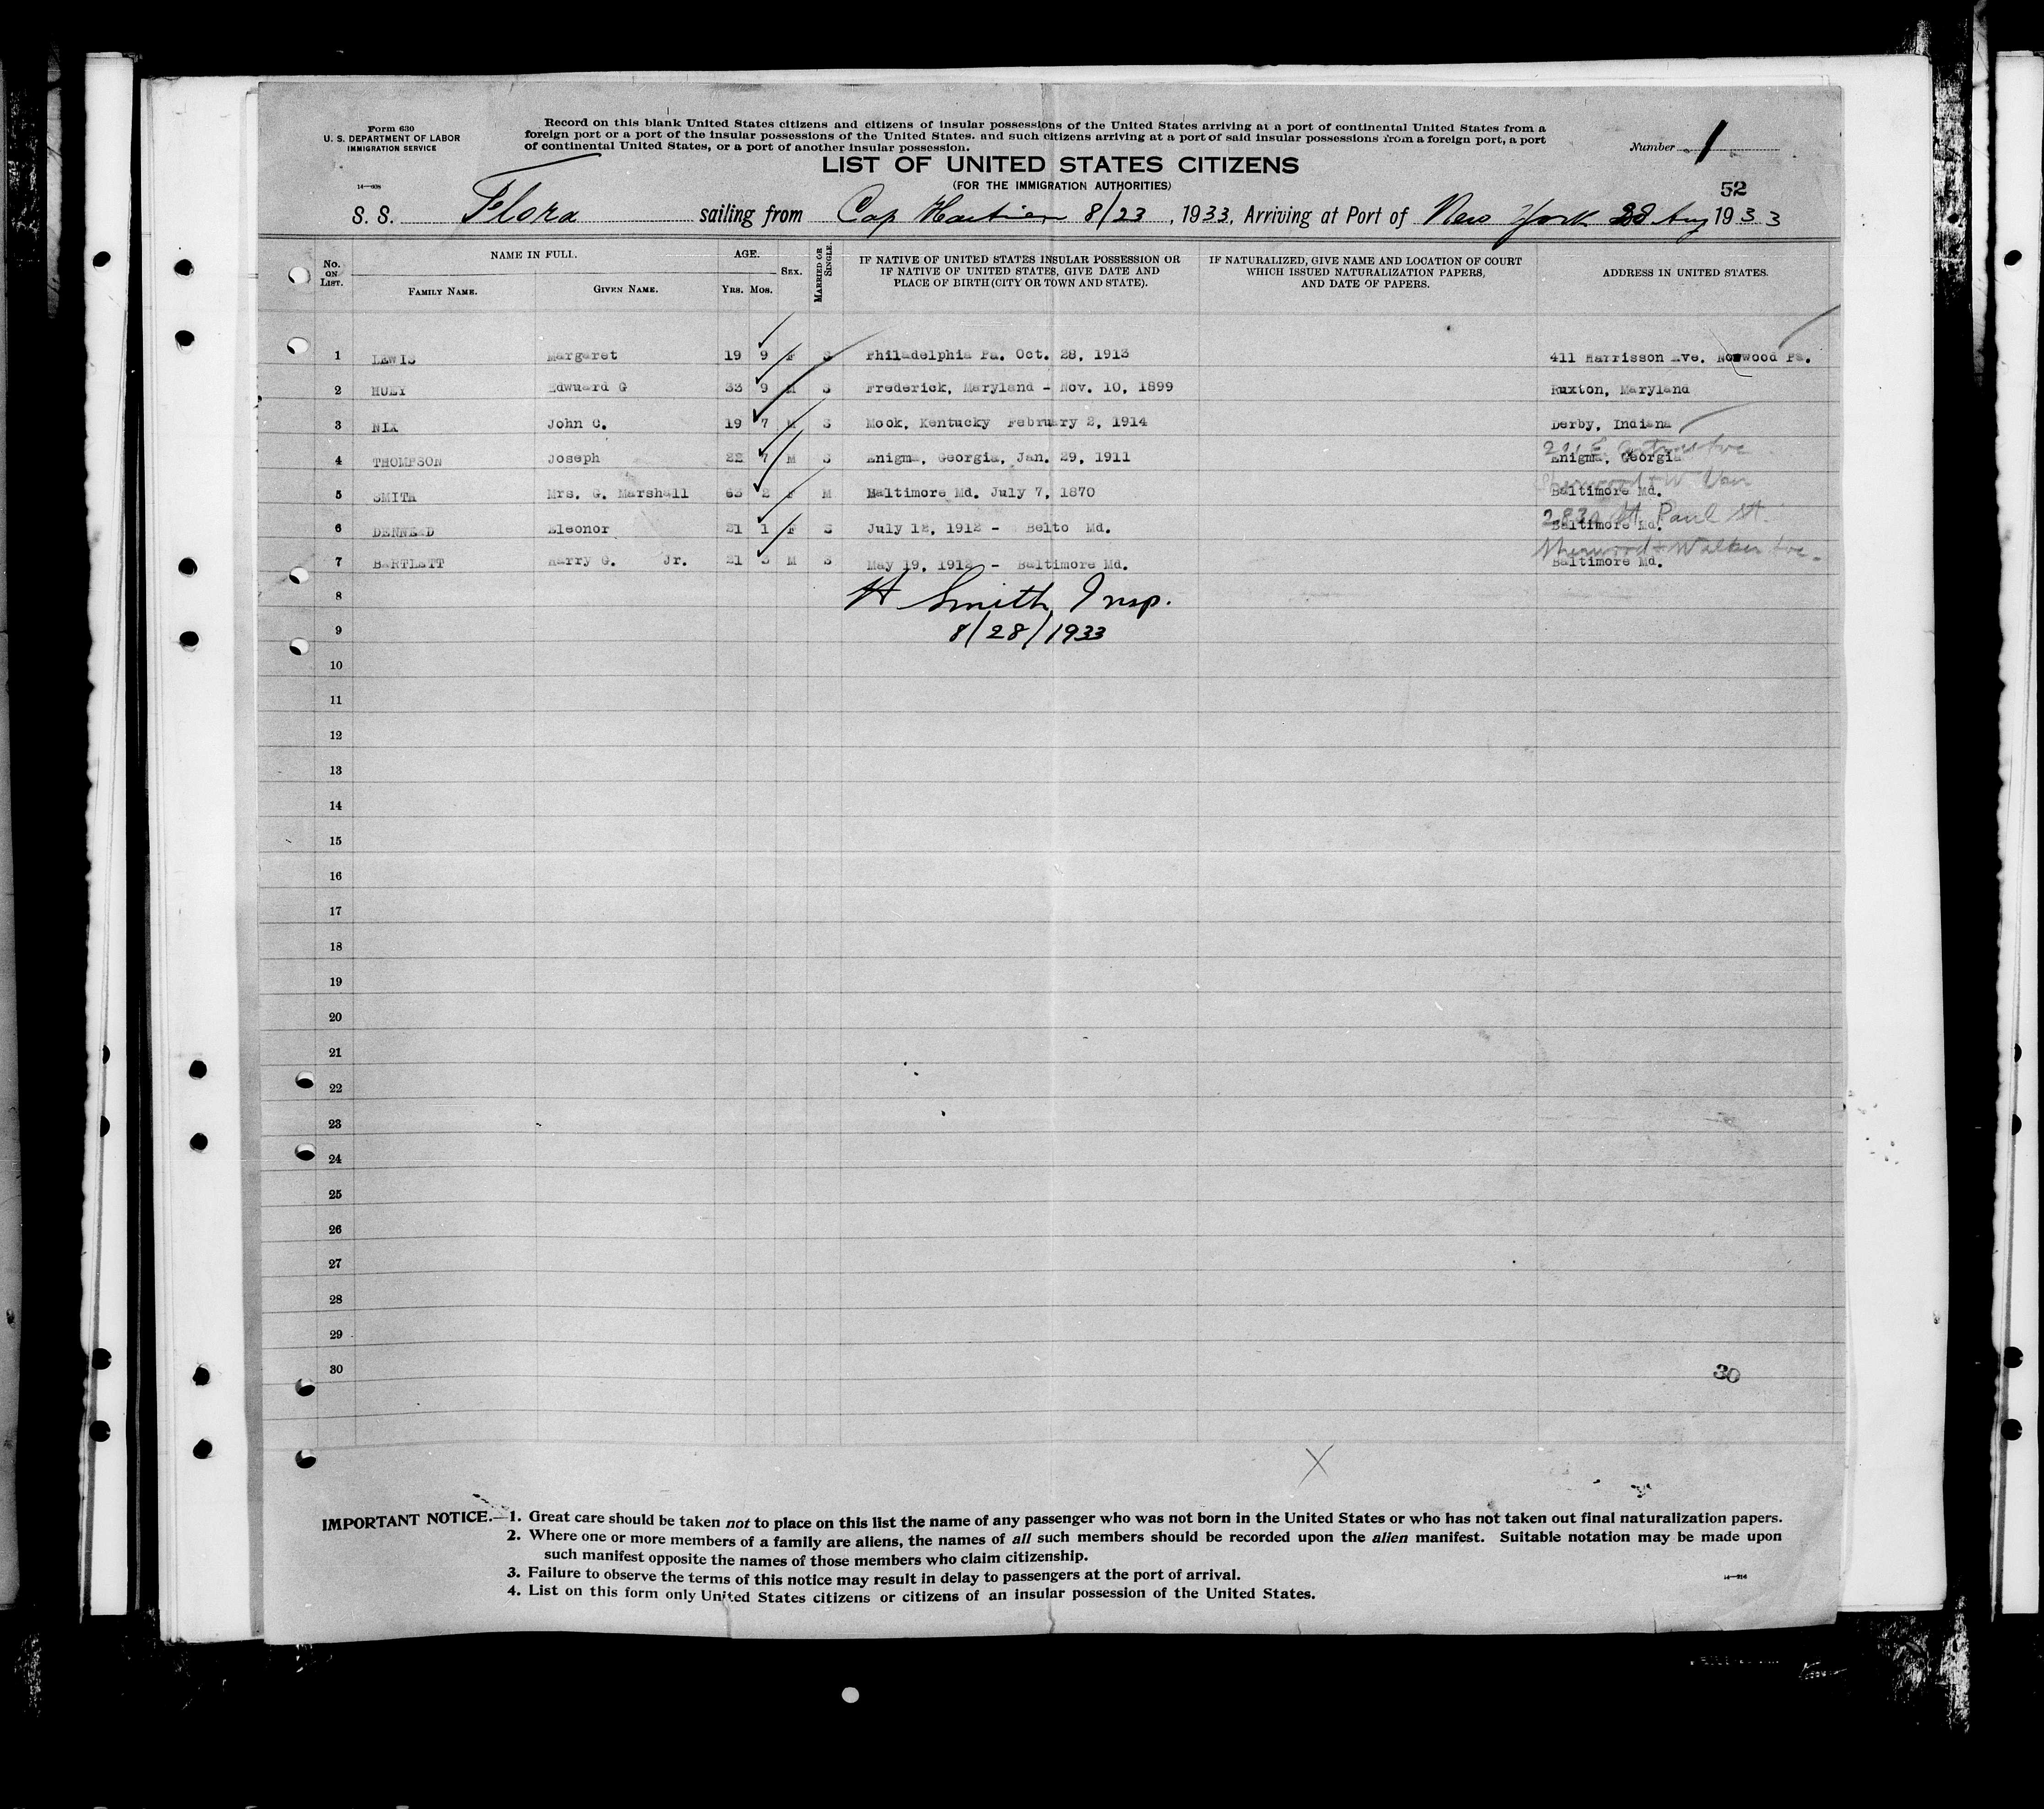 Form 630
U. S. DEPARTMENT OF LABOR
IMMIGRATION SERVICE
14—608
Record on this blank United States citizens and citizens of insular possessions of the United States arriving at a port of continental United States from a
foreign port or a port of the insular possessions of the United States. and such citizens arriving at a port of said insular possessions from a foreign port, a port
of continental United States, or a port of another insular possession.
Number 1
LIST OF UNITED STATES CITIZENS
(FOR THE IMMIGRATION AUTHORITIES)
52
S. S. Flora sailing from Cap Haitien 8/23, 1933, Arriving at Port of New York 28 Aug 1933
No. ON LIST.
NAME IN FULL.
FAMILY NAME.
GIVEN NAME.
AGE.
YRS. MOS.
SEX.
MARRIED OR SINGLE.
IF NATIVE OF UNITED STATES INSULAR POSSESSION OR
IF NATIVE OF UNITED STATES, GIVE DATE AND
PLACE OF BIRTH (CITY OR TOWN AND STATE).
IF NATURALIZED, GIVE NAME AND LOCATION OF COURT
WHICH ISSUED NATURALIZATION PAPERS,
AND DATE OF PAPERS.
ADDRESS IN UNITED STATES.
1 LEWIS Margaret 19 9 F S Philadelphia Pa. Oct. 28, 1913 411 Harrisson Ave. Norwood Pa.
2 HUEY Edwuard G 33 9 M S Frederick, Maryland - Nov. 10, 1899 Ruxton, Maryland
3 NIX John C. 19 7 M S Mook, Kentucky February 2, 1914 Derby, Indiana
4 THOMPSON Joseph 22 7 M S Enigma, Georgia, Jan. 29, 1911 Enigma, Georgia
5 SMITH Mrs. G. Marshall 63 2 F M Baltimore Md. July 7, 1870 Baltimore Md.
St. Paul St.
6 DENNEAD Eleonor 21 1 F S July 12, 1912 - Belto Md. Baltimore Md.
Sherwood + Walker Ave.
7 BARTLETT Harry G. Jr. 21 3 M S May 19, 1912 - Baltimore Md. Baltimore Md.
8 H Smith, Insp.
9 8/28/1933
10
11
12
13
14
15
16
17
18
19
20
21
22
23
24
25
26
27
28
29
30 30
X
IMPORTANT NOTICE.—1. Great care should be taken not to place on this list the name of any passenger who was not born in the United States or who has not taken out final naturalization papers.
2. Where one or more members of a family are aliens, the names of all such members should be recorded upon the alien manifest. Suitable notation may be made upon
such manifest opposite the names of those members who claim citizenship.
3. Failure to observe the terms of this notice may result in delay to passengers at the port of arrival.
4. List on this form only United States citizens or citizens of an insular possession of the United States.